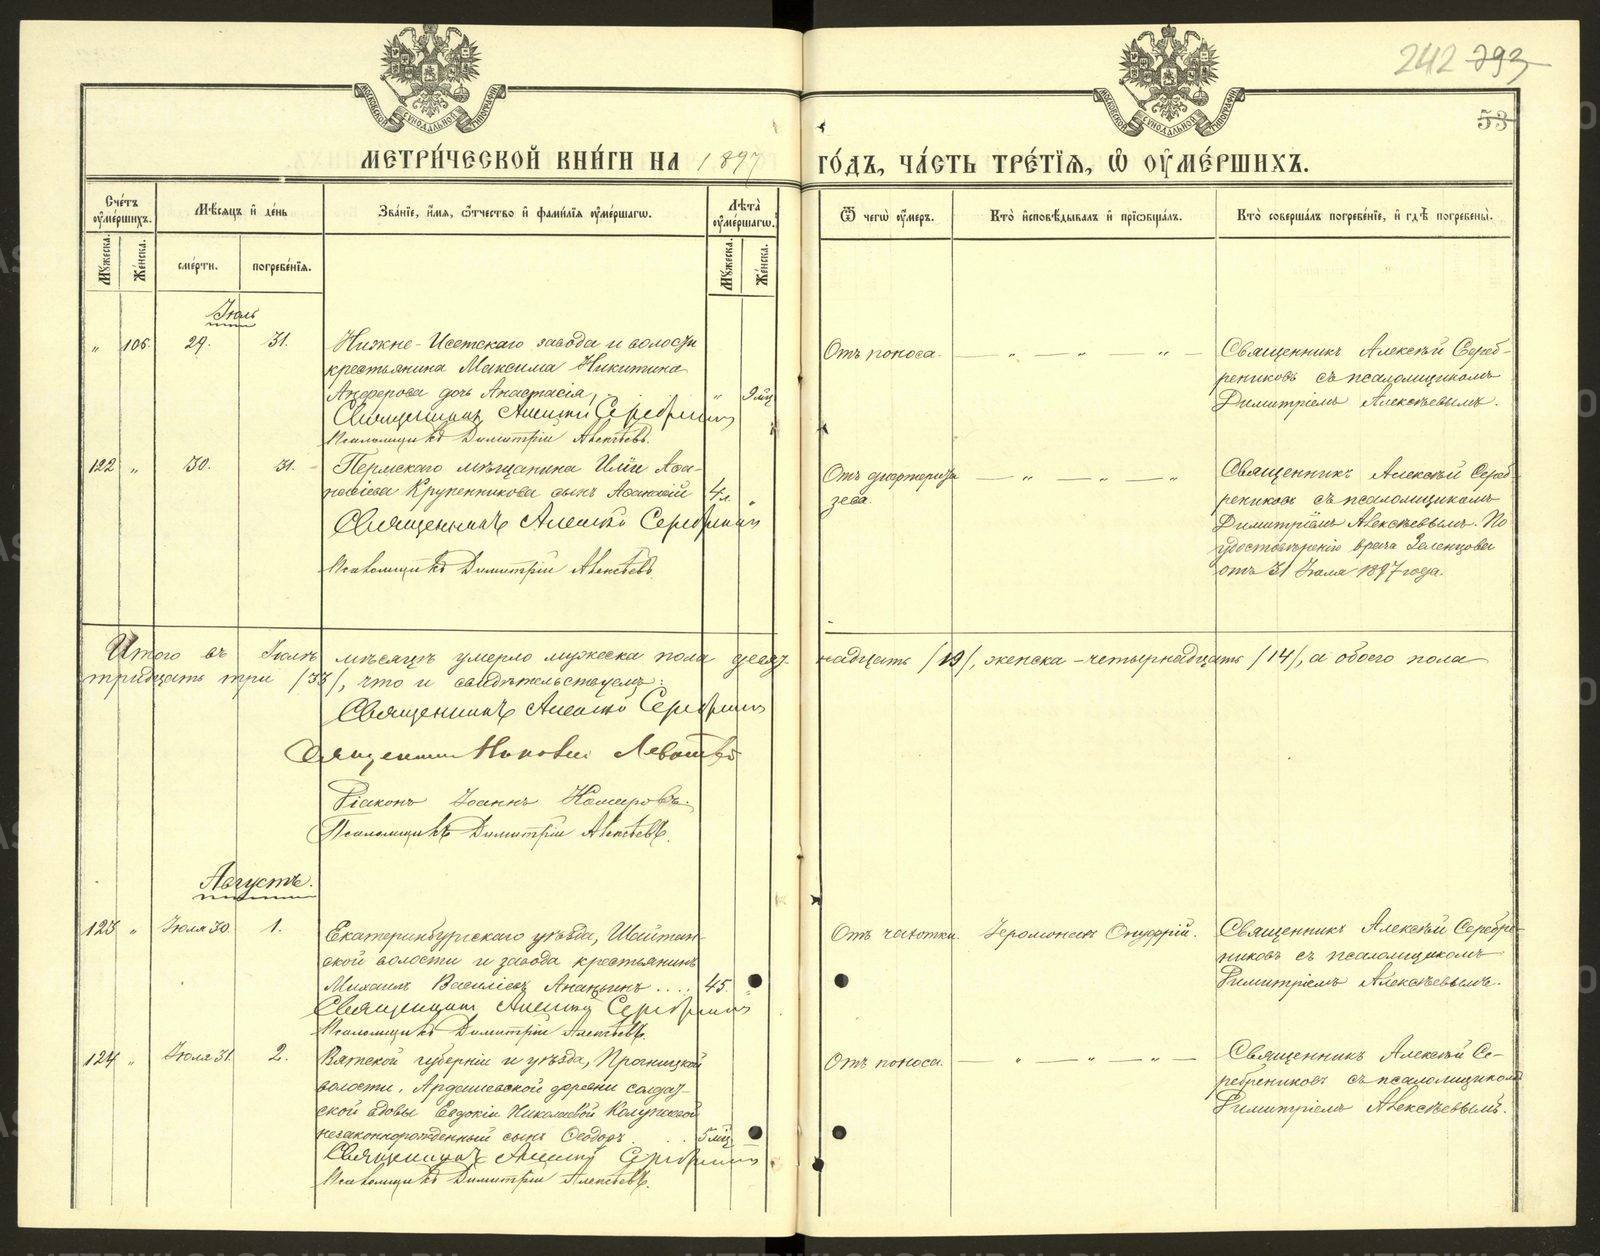 242 293
53
МЕТРИ́ЧЕСКОЙ КНИ́ГИ НА 1897 ГО́ДЪ, ЧА́СТЬ ТРЕ́ТІЯ, Ѽ ОУМЕ́РШИХЪ.
Сче́тъ оуме́ршихъ.
Мѣ́сяцъ и де́нь
Зва́нїе, и́мя, ѻ҆́тчество и фами́лїя оуме́ршагѡ.
Лѣта̀ оуме́ршагѡ.
Ѿ чегѡ̀ оу́меръ.
Кто̀ исповѣ́дывалъ и прїѡбща́лъ.
Кто̀ соверша́лъ погребе́нїе, и гдѣ̀ погребены̀.
Му́жеска.
Же́нска.
сме́рти.
погребе́нїя.
Му́жеска.
Же́нска.
Іюль
„ 106. 29. 31. Нижне-Исетскаго завода и волости
крестьянина Максима Никитина
Анферова дочь Анастасія, „ 9 мц
Священникъ Алексѣй Серебренниковъ
Псаломщикъ Димитрій Алексѣевъ.
Отъ поноса. — „ — „ — „ —
Священникъ Алексѣй Сереб-
рениковъ съ псаломщикомъ
Димитріемъ Алексѣевымъ.
122 „ 30. 31. Пермскаго мѣщанина Иліи Аѳа-
насіева Крупенникова сынъ Аѳанасій 4 л. „
Священникъ Алексѣй Серебренниковъ
Псаломщикъ Димитрій Алексѣевъ.
Отъ
зева. — „ — „ — „
Священникъ Алексѣй Сереб-
рениковъ съ псаломщикомъ
Димитріемъ Алексѣевымъ. По
удостовѣренію врача Зеленцова
отъ 31 Іюля 1897 года.
Итого въ Іюлѣ мѣсяцѣ умерло мужеска пола девят-надцать /19/, женска – четырнадцать /14/, а обоего пола
тридцать три /33/, что и свидѣтельствуемъ:
Священникъ Алексѣй Серебренниковъ
Священникъ
Діаконъ Іоаннъ
Псаломщикъ Димитрій Алексѣевъ.
Августъ.
123 „ Іюля 30. 1. Екатеринбургскаго уѣзда, Шайтан-
ской волости и завода крестьянинъ
Михаилъ Василіевъ Ананьинъ .... 45.
Священникъ Алексѣй Серебренниковъ
Псаломщикъ Димитрій Алексѣевъ.
Отъ чахотки. Іеромонахъ Онуфрій.
Священникъ Алексѣй Серебре-
никовъ съ псаломщикомъ
Димитріемъ Алексѣевымъ.
124 „ Іюля 31. 2. Вятской губерніи и уѣзда, Просницкой
волости, Ардашевской деревни солдат-
ской вдовы Евдокіи Николаевой
незаконнорожденный сынъ Ѳеодоръ. . . . 5 мц
Священникъ Алексѣй Серебренниковъ
Псаломщикъ Димитрій Алексѣевъ.
Отъ поноса. — „ — „ — „ —
Священникъ Алексѣй Се-
ребрениковъ съ псаломщикомъ
Димитріемъ Алексѣевымъ.